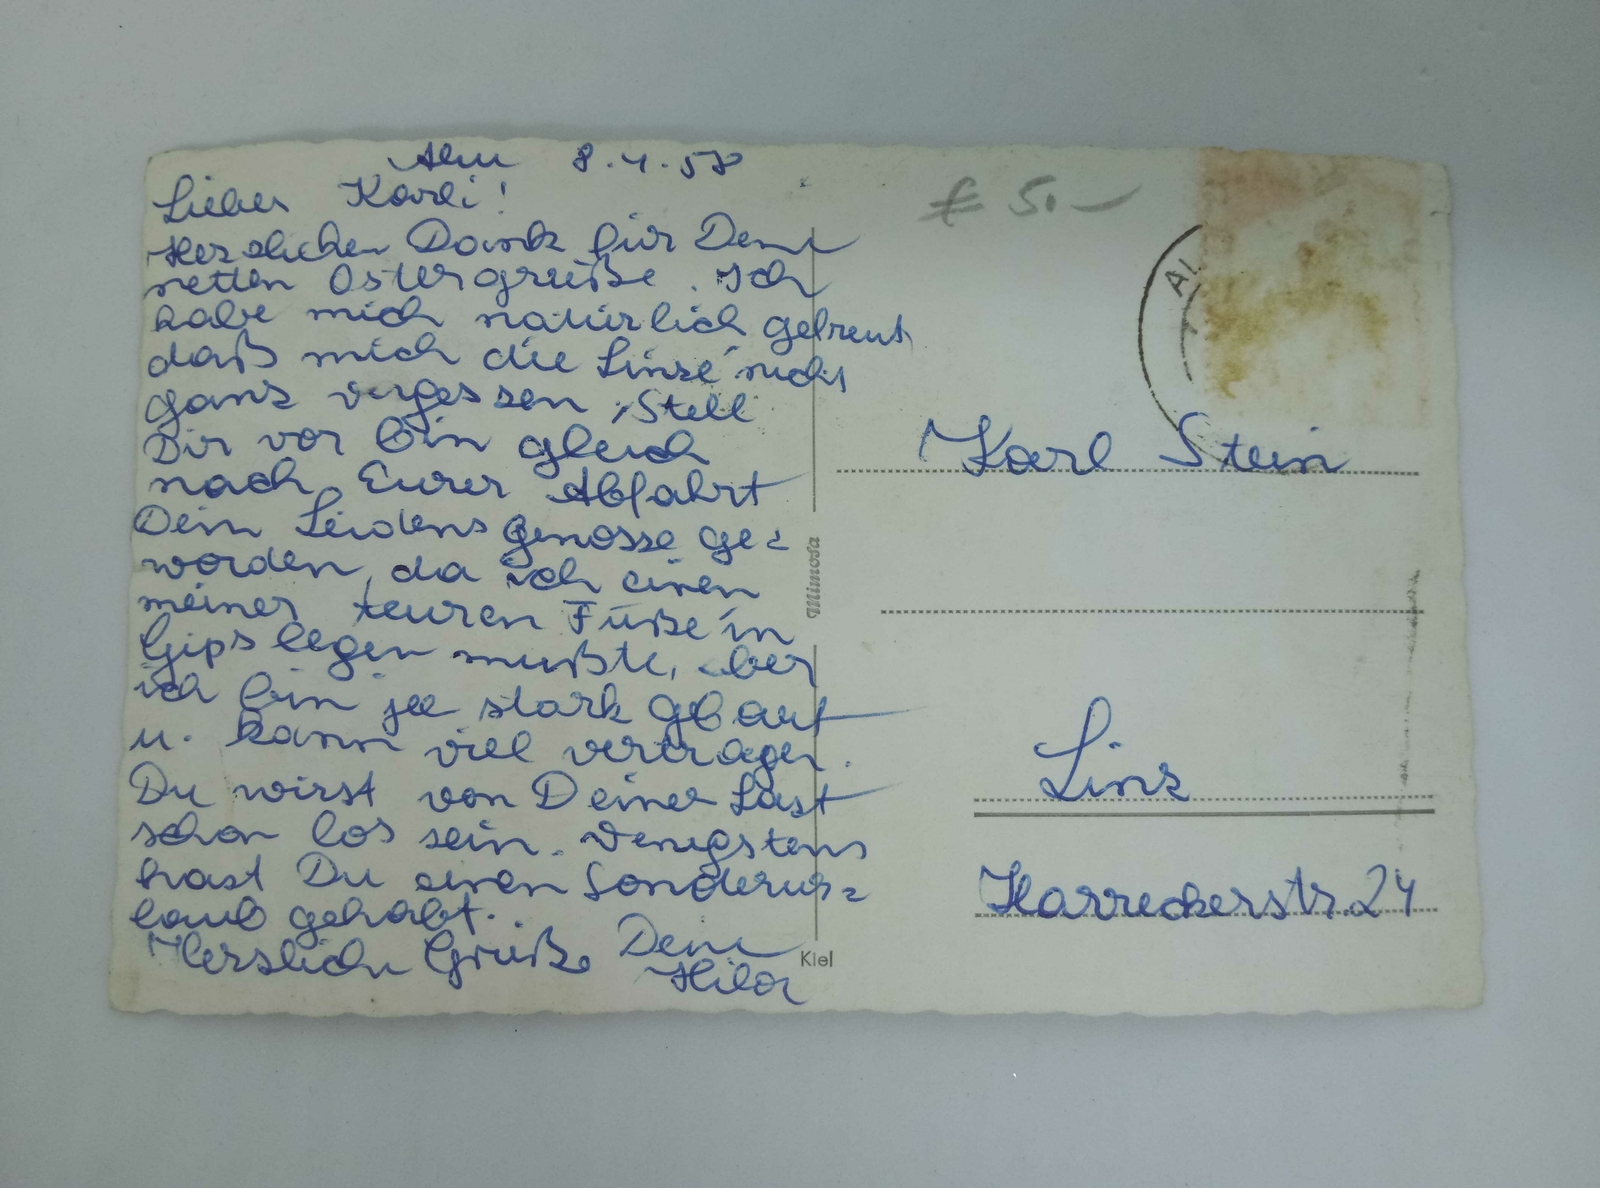 Alm 8.4.58
Lieber Karli!
Herzlichen Dank für Deine
netten Ostergrüße. Ich
habe mich natürlich gefreut
daß mich die Linzer nicht
ganz vergessen. Stell
Dir vor bin gleich
nach Eurer Abfahrt
Dein Leidensgenosse ge=
worden, da ich einen
meiner teuren Füße in
Gips legen mußte, aber
ich bin ja stark gebaut
u. kann viel vertragen.
Du wirst von Deiner Last
schon los sein. Wenigstens
hast Du einen Sonderur=
laub gehabt.
Herzlich Grüße Deine
Hilda
Mimosa
Kiel
€ 50.-
Al
Karl Stein
Linz
Harreckerstr. 24